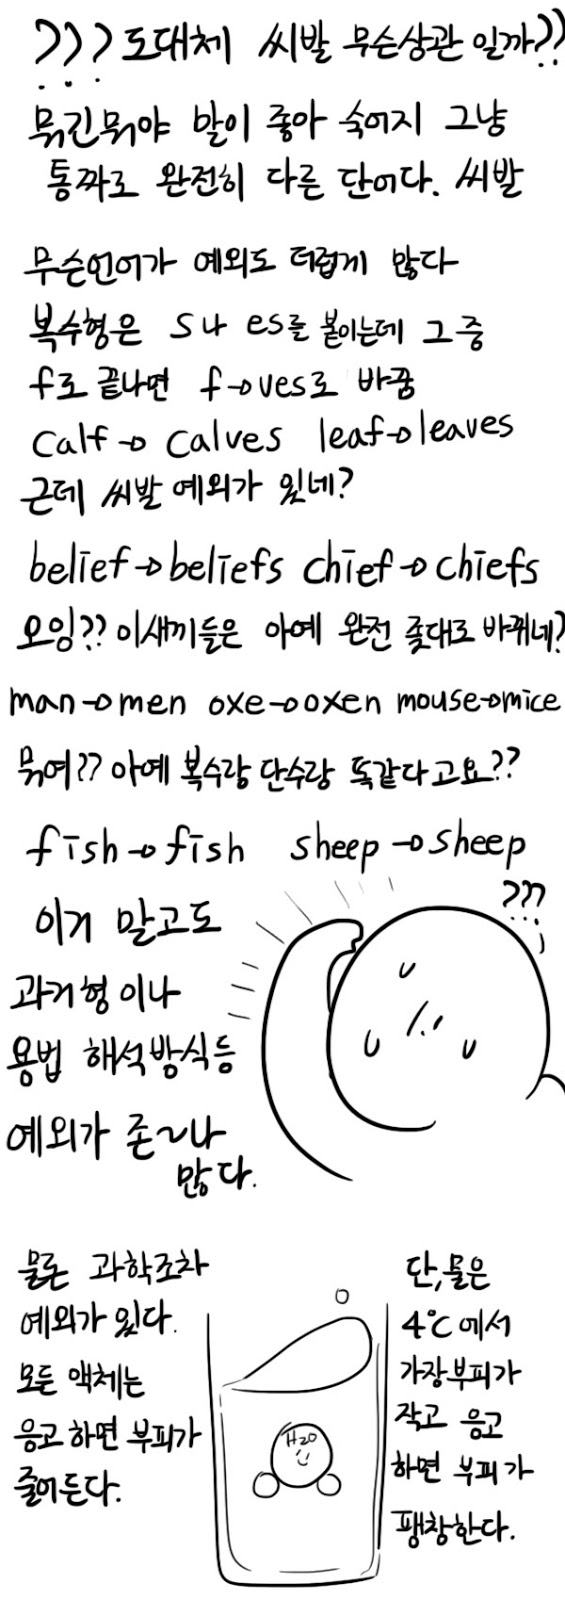 ??? 도대체 씨발 무슨상관 일까??
뭐긴뭐야 말이 좋아 숙어지 그냥
통짜로 완전히 다른 단어다. 씨발
무슨언어가 예외도 더럽게 많다
복수형은 s나 es를 붙이는데 그 중
f로 끝나면 f→ves로 바꿈
calf→calves leaf→leaves
근데 씨발 예외가 있네?
belief→beliefs chief→chiefs
모임?? 이새끼들은 아예 완전 좆대로 바뀌네?
man→men oxe→oxen mouse→mice
뭐여?? 아예 복수랑 단수랑 똑같다고요??
fish→fish sheep→sheep
???
이거 말고도
과거형이나
용법 해석방식등
예외가 존~나
많다.
물론 과학조차
예외가 있다.
모든 액체는
응고 하면 부피가
줄어든다.
H2O
단, 물은
4°C에서
가장부피가
작고 응고
하면 부피가
팽창한다.